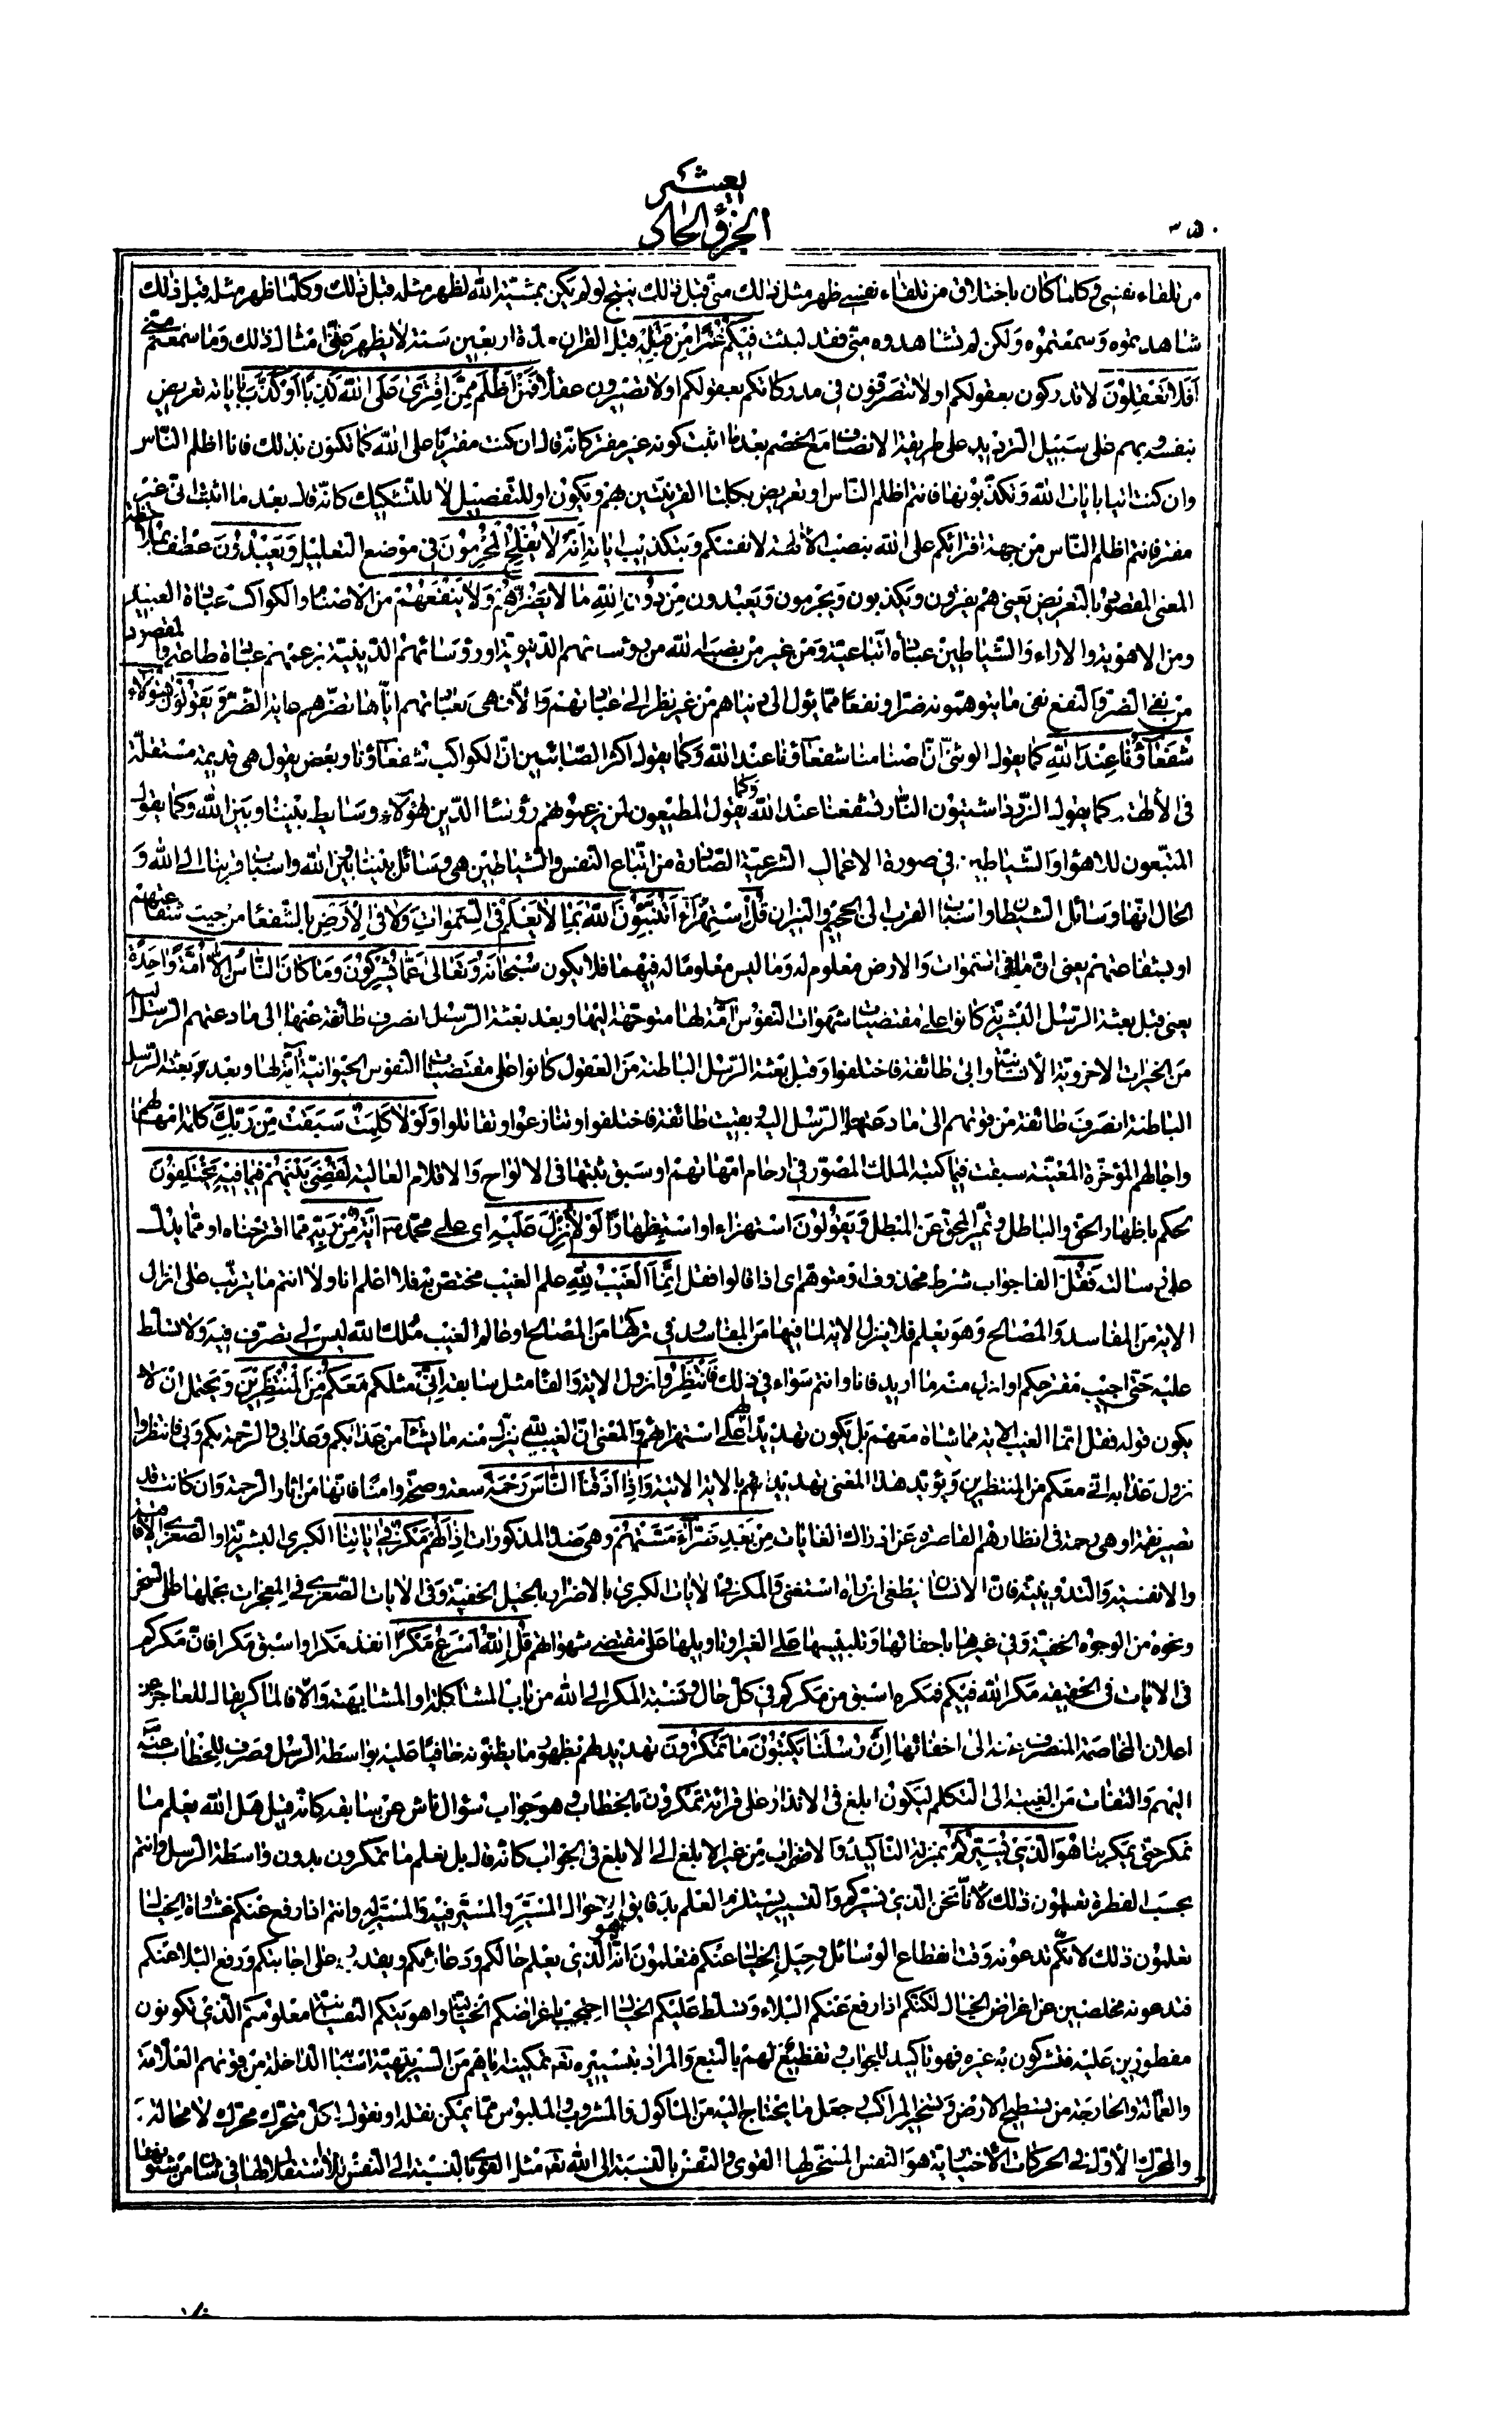 الجزؤ الحادى عشر
٣٥٠
من تلقاء نفسى وكلما كان باختلاق من تلقاء نفسى ظهر مثل ذلك منّى قبل ذلك ينتج لو لم يكن بمشيّة الله لظهر مثله قبل ذلك وكلّما ظهر مثله قبل ذلك
شاهدتموه وسمعتموه ولكن لم تشاهدوه منّى فقد لبثت فيكم عمرا من قبله قبل القران مدّة اربعين سنة لا يظهر منّى امثال ذلك وما سمعتم منّى
افلا تعقلون لا تدركون بعقولكم او لا تتصرّفون فى مدركاتكم بعقولكم او لا تصيرون عقلاء فمن اظلم ممّن افترى على الله كذبا او كذّب باياته تعريض
بنفسه وبهم على سبيل الترديد على طريقة الانصاف مع الخصم بعد ما اثبت كونه غير مفتر كانّه قال ان كنت مفتريا على الله كما تكون بذلك فانا اظلم الناس
وان كنت اتيا بايات الله وتكذّبونها فانتم اظلم الناس او تعريض بكلتا القرينتين بهم ويكون او للتفصيل لا للتشكيك كانّه قال بعد ما اثبت انّى غير
مفتر فانتم اظلم الناس من جهة افترائكم على الله بنصب الالهة لانفسكم وبتكذيب اياته انّه لا يفلح المجرمون فى موضع التعليل ويعبدون عطف بملاحظة
المعنى المقصود بالتعريض يعنى هم يفترون ويكذبون ويجرمون ويعبدون من دون الله ما لا يضرّهم ولا ينفعهم من الاصنام والكواكب عبادة العبيد
ومن الاهوية والاراء والشياطين عبادة اتّباعيّة ومن غير من نصبه الله من رؤسائهم الدنيويّة او رؤسائهم الدينيّة بزعمهم عبادة طاعة والمقصود
من نفى الضرّ والنفع نفى ما يتوهّمونه ضرّا ونفعا ممّا يؤل الى دنياهم من غير نظر الى عباداتهم والّا فهى بعباداتهم ايّاها تضرّهم غاية الضرّ ويقولون هؤلاء
شفعاؤنا عند الله كما يقول الوثنى انّ اصنامنا شفعاؤنا عند الله وكما يقول اكثر الصّابئين انّ الكواكب شفعاؤنا وبعض يقول هى قديمة مستقلّة
فى الالهة كما يقول الزردشتيون النّار تشفعنا عند الله وكما يقول المطيعون لمن زعموهم رؤساء الدين هؤلاء وسايط بيننا وبين الله وكما يقول
المتبعون للاهواء والشياطين فى صورة الاعمال الشرعيّة الصادرة من اتّباع النفس والشياطين هى وسائل بيننا وبين الله واسباب قربنا الى الله و
الحال انّها وسائل الشيطان واسباب القرب الى الجحيم والنيران قل استهزاء اتنبّئون الله بما لا يعلم فى السموات ولا فى الارض بالشفعاء من حيث شفاعتهم
او بشفاعتهم يعنى انّ ما فى السموات والارض معلوم له وما ليس معلوما له فيهما فلا يكون سبحانه وتعالى عمّا يشركون وما كان النّاس الّا امّة واحدة
يعنى قبل بعثة الرسل البشرية كانوا على مقتضيات شهوات النفوس امّة لها متوجّهة اليها وبعد بعثة الرسل انصرف طائفة عنها الى ما دعتهم الرسل اليه
من الخيرات الاخروية الانسانيّة وابى طائفة فاختلفوا وقبل بعثة الرسل الباطنة من العقول كانوا على مقتضيات النفوس الحيوانيّة امّة لها وبعد بعثة الرسل
الباطنة انصرف طائفة من قوتهم الى ما دعتها الرسل اليه وبقيت طائفة فاختلفوا وتنازعوا وتقاتلوا ولولا كلمة سبقت من ربّك كلمة امهالهم
واجالهم المؤخّرة المعيّنة سبقت فيما كتبه الملك المصوّر فى ارحام امّهاتهم او سبق ثبتها فى الالواح والاقلام العالية لقضى بينهم فيما فيه يختلفون
بحكم باظهار الحقّ والباطل وتميّز المحقّ عن المبطل ويقولون استهزاء او استظهارا لولا انزل عليه اى على محمّد ص اية من ربّه ممّا اقترحناه او ممّا يدلّ
على رسالته فقل الفا جواب شرط محذوف او متوهم اى اذا قالوا فقل انّما الغيب لله علم الغيب مختصّ به فلا اعلم انا ولا انتم ما يترتّب على انزال
الاية من المفاسد والمصالح وهو يعلم فلا ينزل الاية لما فيها من المفاسد وفى تركها من المصالح او عالم الغيب ملك لله ليس لى تصرّف فيه ولا تسلّط
عليه حتّى اجيب مقترحكم او انزل منه ما اريد فانا وانتم سواء فى ذلك فانتظروا نزول الاية والفا مثل سابقه انّى مثلكم معكم من المنتظرين ويحتمل ان لا
يكون قوله فقل انّما الغيب الاية مماشاة معهم بل يكون تهديدا لهم على استهزائهم والمعنى انّ الغيب لله ينزل منه ما يشاء من عذابكم وعذابى والرحمة بكم وبى فانتظروا
نزول عذابه انّى معكم من المنتظرين ويؤيّد هذا المعنى تهديدهم بالاية الاتية واذا اذقنا النّاس رحمة سعة وصحّة وامنا فانّها من اثار الرحمة وان كانت قد
تصير نقمة او هى رحمة فى انظارهم القاصرة عن ادراك الغايات من بعد ضرّاء مسّتهم وهى ضدّ المذكورات اذا لهم مكر فى اياتنا الكبرى البشريّة او الصغرى الافاقية
والانفسية والتدوينيّة فانّ الانسان ليطغى ان راه استغنى والمكر فى الايات الكبرى بالاضرار بالحيل الخفيّة وفى الايات الصّغرى فى المعجزات بحملها على السّحر
ونحوه من الوجوه الخفيّة وفى غيرها باخفائها وتلبيسها على الغير او تاويلها على مقتضى شهواتهم قل الله اسرع مكرا انفذ مكرا واسبق مكرا فانّ مكركم
فى الايات فى الحقيقة مكر الله فيكم فمكره اسبق من مكركم فى كلّ حال ونسبة المكر الى الله من باب المشاكلة او المشابهة والّا فالمكر يقال للعاجز عن
اعلان المخاصمة المنصرف عنه الى اخفائها انّ رسلنا يكتبون ما تمكرون تهديد لهم بظهور ما يظنّونه خافيا عليه بواسطة الرسل وصرف للخطاب عنه
اليهم والتفات من الغيبة الى التكلّم ليكون ابلغ فى الانذار على قرائة تمكرون بالخطاب وهو جواب سؤال ناش عن سابقه كانّه قيل هل الله يعلم ما
نمكر حتّى يمكر بنا هو الّذى يسيّركم بمنزلة التاكيد والاضراب من غير الابلغ الى الابلغ فى الجواب كانّه قال بل يعلم ما تمكرون بدون واسطة الرسل وانتم
بحسب الفطرة تعلمون ذلك لانّا نحن الّذى نسيّركم والتسيير يستلزم العلم بدقايق احوال المسيّر والمسيّر فيه والمسيّر له وانتم اذا رفع عنكم غشاوة الخيال
تعلمون ذلك لانّكم تدعونه وقت انقطاع الوسائل وحيل الخيال عنكم فتعلمون انّه هو الّذى يعلم حالكم ودعائكم ويقدر على اجابتكم ورفع البلاء عنكم
فتدعونه مخلصين عن اغراض الخيال لكنّكم اذا رفع عنكم البلاء وتسلّط عليكم الخيال احتجب باغراضكم الخياليّة واهويتكم النفسانيّة معلومكم الّذى تكونون
مفطورين عليه فتشركون به غيره فهو تاكيد للجواب وتفظيع لهم بالتبع والمراد بتسييره تع تمكينه ايّاهم من السير بتهيّة اسبابه الداخلة من قوتهم العلّامة
والعمّالة والخارجة من تسطيح الارض وتسخير المراكب وجعل ما يحتاج اليه من الماكول والمشروب والملبوس ممّا يمكن نقله او نقول كلّ متحرّك محرّك لا محالة
والمحرّك الاوّل فى الحركات الاختياريّة هو النفس المسخّر لها القوى والنفس بالنسبة الى الله تع مثل القوى بالنسبة الى النفس لا استقلال لها فى شان من شئونها